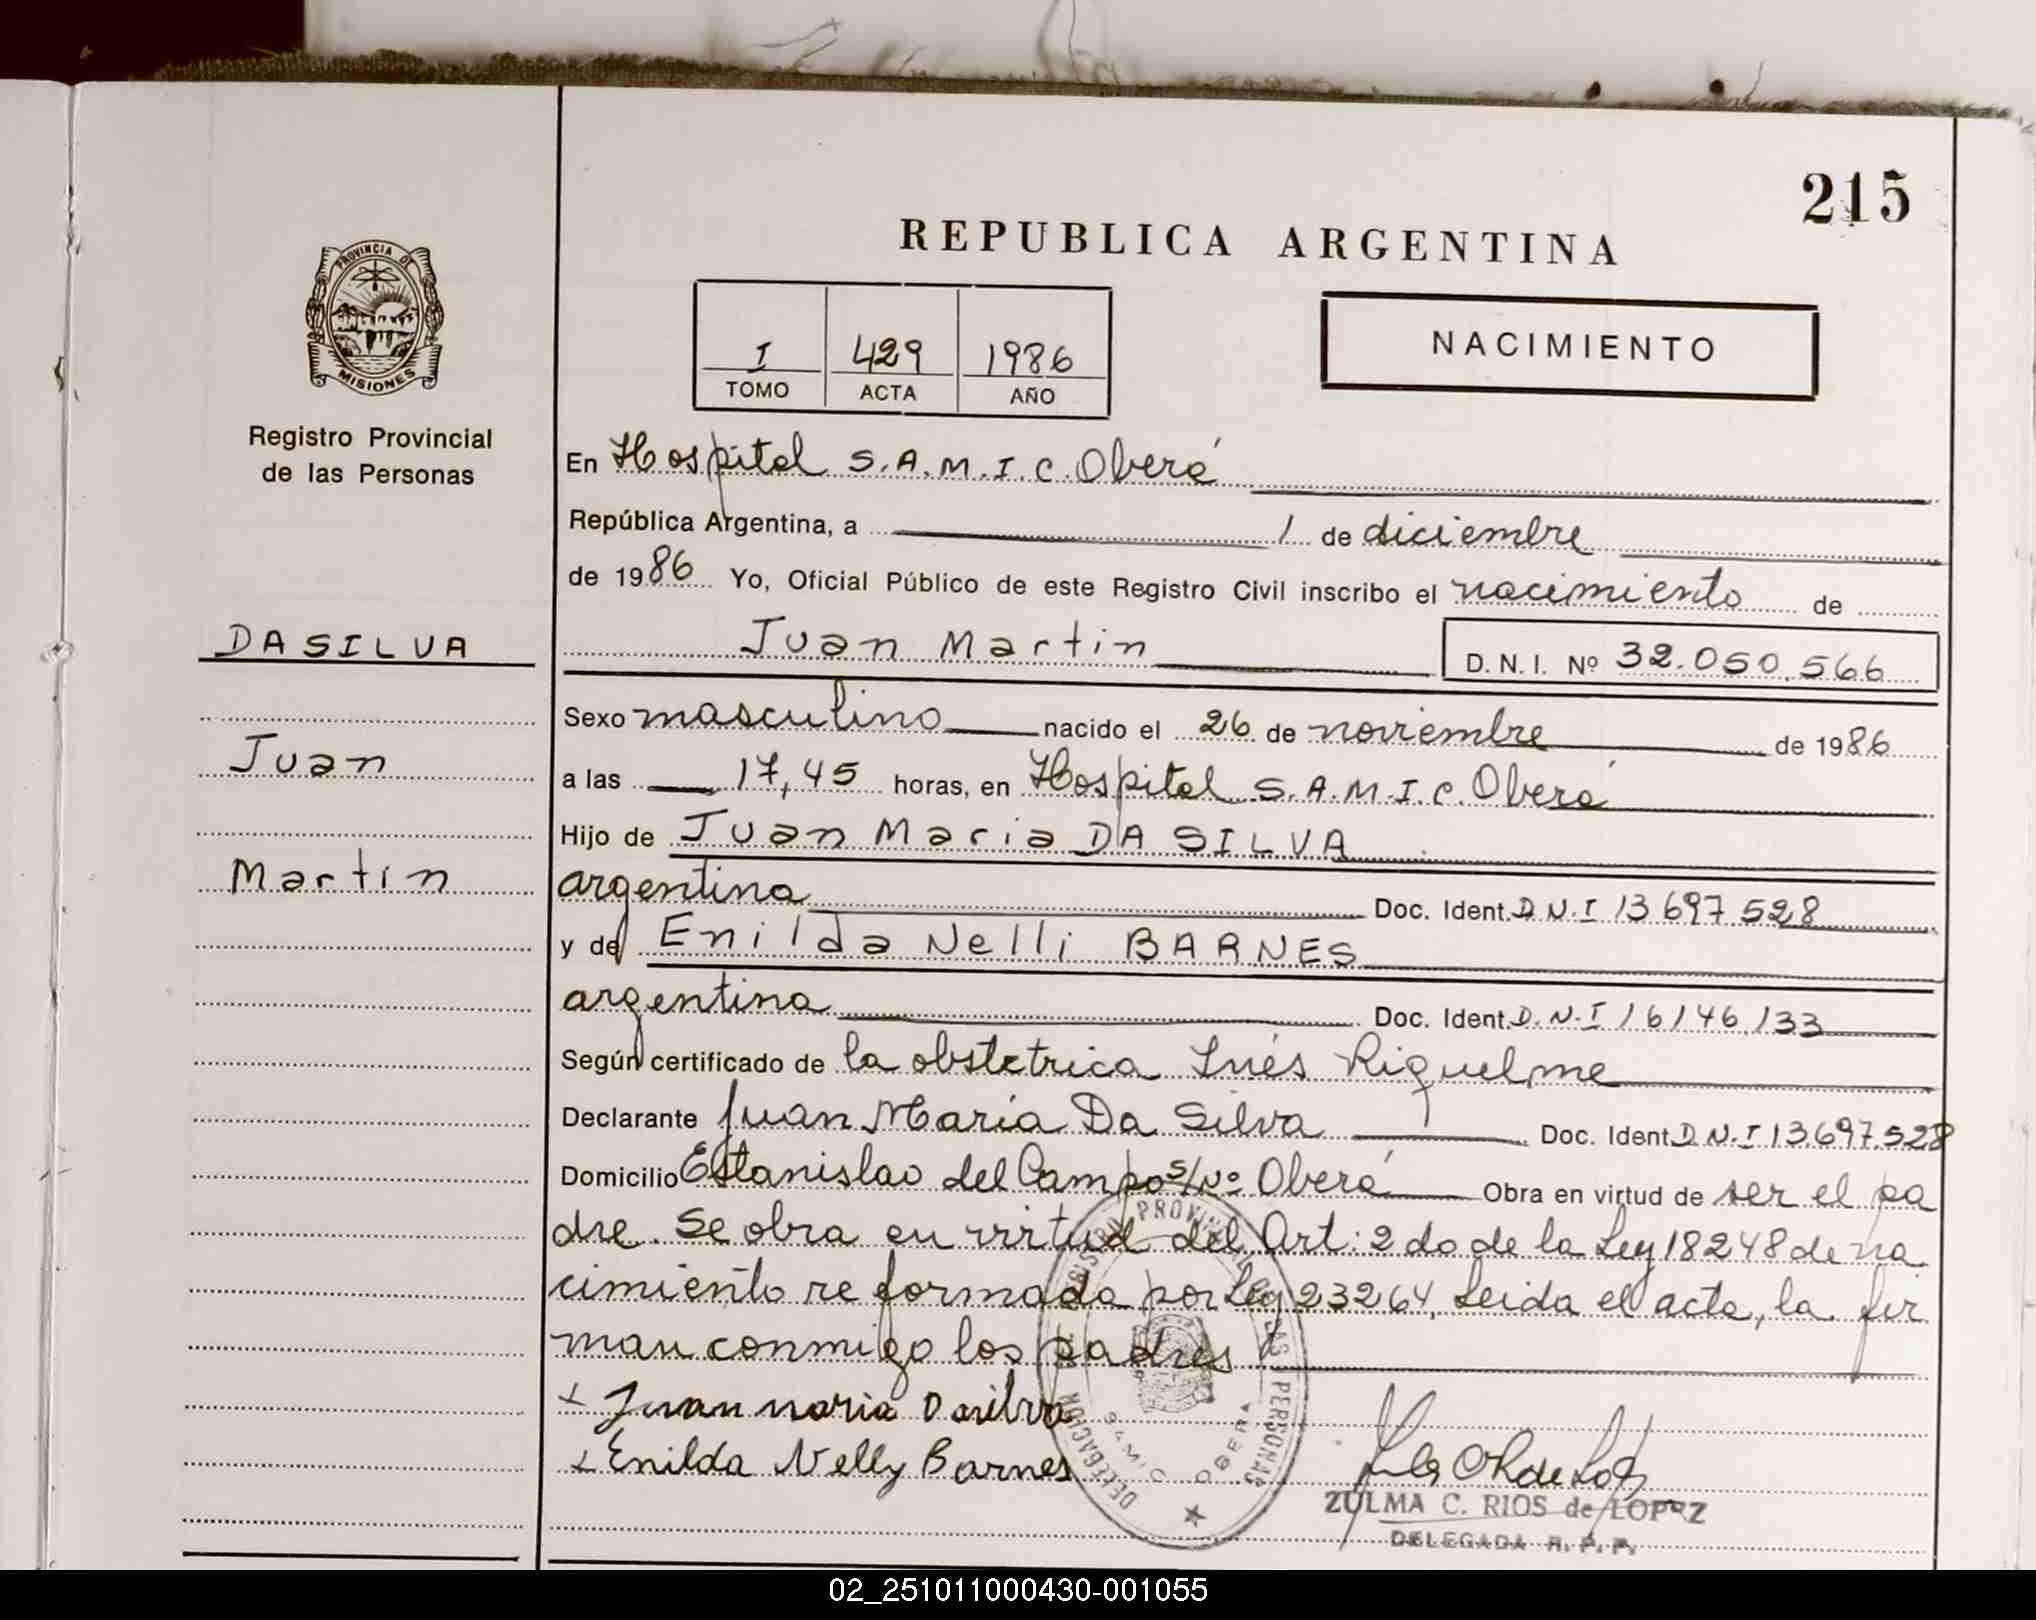 215
REPUBLICA ARGENTINA
PROVINCIA DE
MISIONES
Registro Provincial
de las Personas
I 429 1986
TOMO ACTA AÑO
NACIMIENTO
En Hospital S.A.M.I.C. Oberá
República Argentina, a 1 de diciembre
de 1986 Yo, Oficial Público de este Registro Civil inscribo el nacimiento de
DA SILVA
Juan Martin D. N. I. Nº 32.050.566
Sexo masculino nacido el 26 de noviembre de 1986
Juan
a las 17,45 horas, en Hospital S.A.M.I.C. Oberá
Hijo de Juan Maria DA SILVA
Martin
argentina Doc. Ident. D.N.I 13697528
y de Enilda Nelli BARNES
argentina Doc. Ident. D.N.I 16146133
Según certificado de la obstetrica Inés Riquelme
Declarante Juan María Da Silva Doc. Ident. D.N.I 13.697.528
Domicilio Estanislao del Campo s/Nº Oberá Obra en virtud de ser el pa
dre. Se obra en virtud del Art: 2do de la Ley 18248 de na
cimiento reformada por Ley 23264, Leida el acta, la fir
man conmigo los padres
Juan maria Dasilva
Enilda Nelly Barnes
REGISTRO PROVINCIAL DE LAS PERSONAS
DELEGACION
SAMIC OBERA
ZULMA C. RIOS de LOPEZ
DELEGADA R. P. P.
02_251011000430-001055